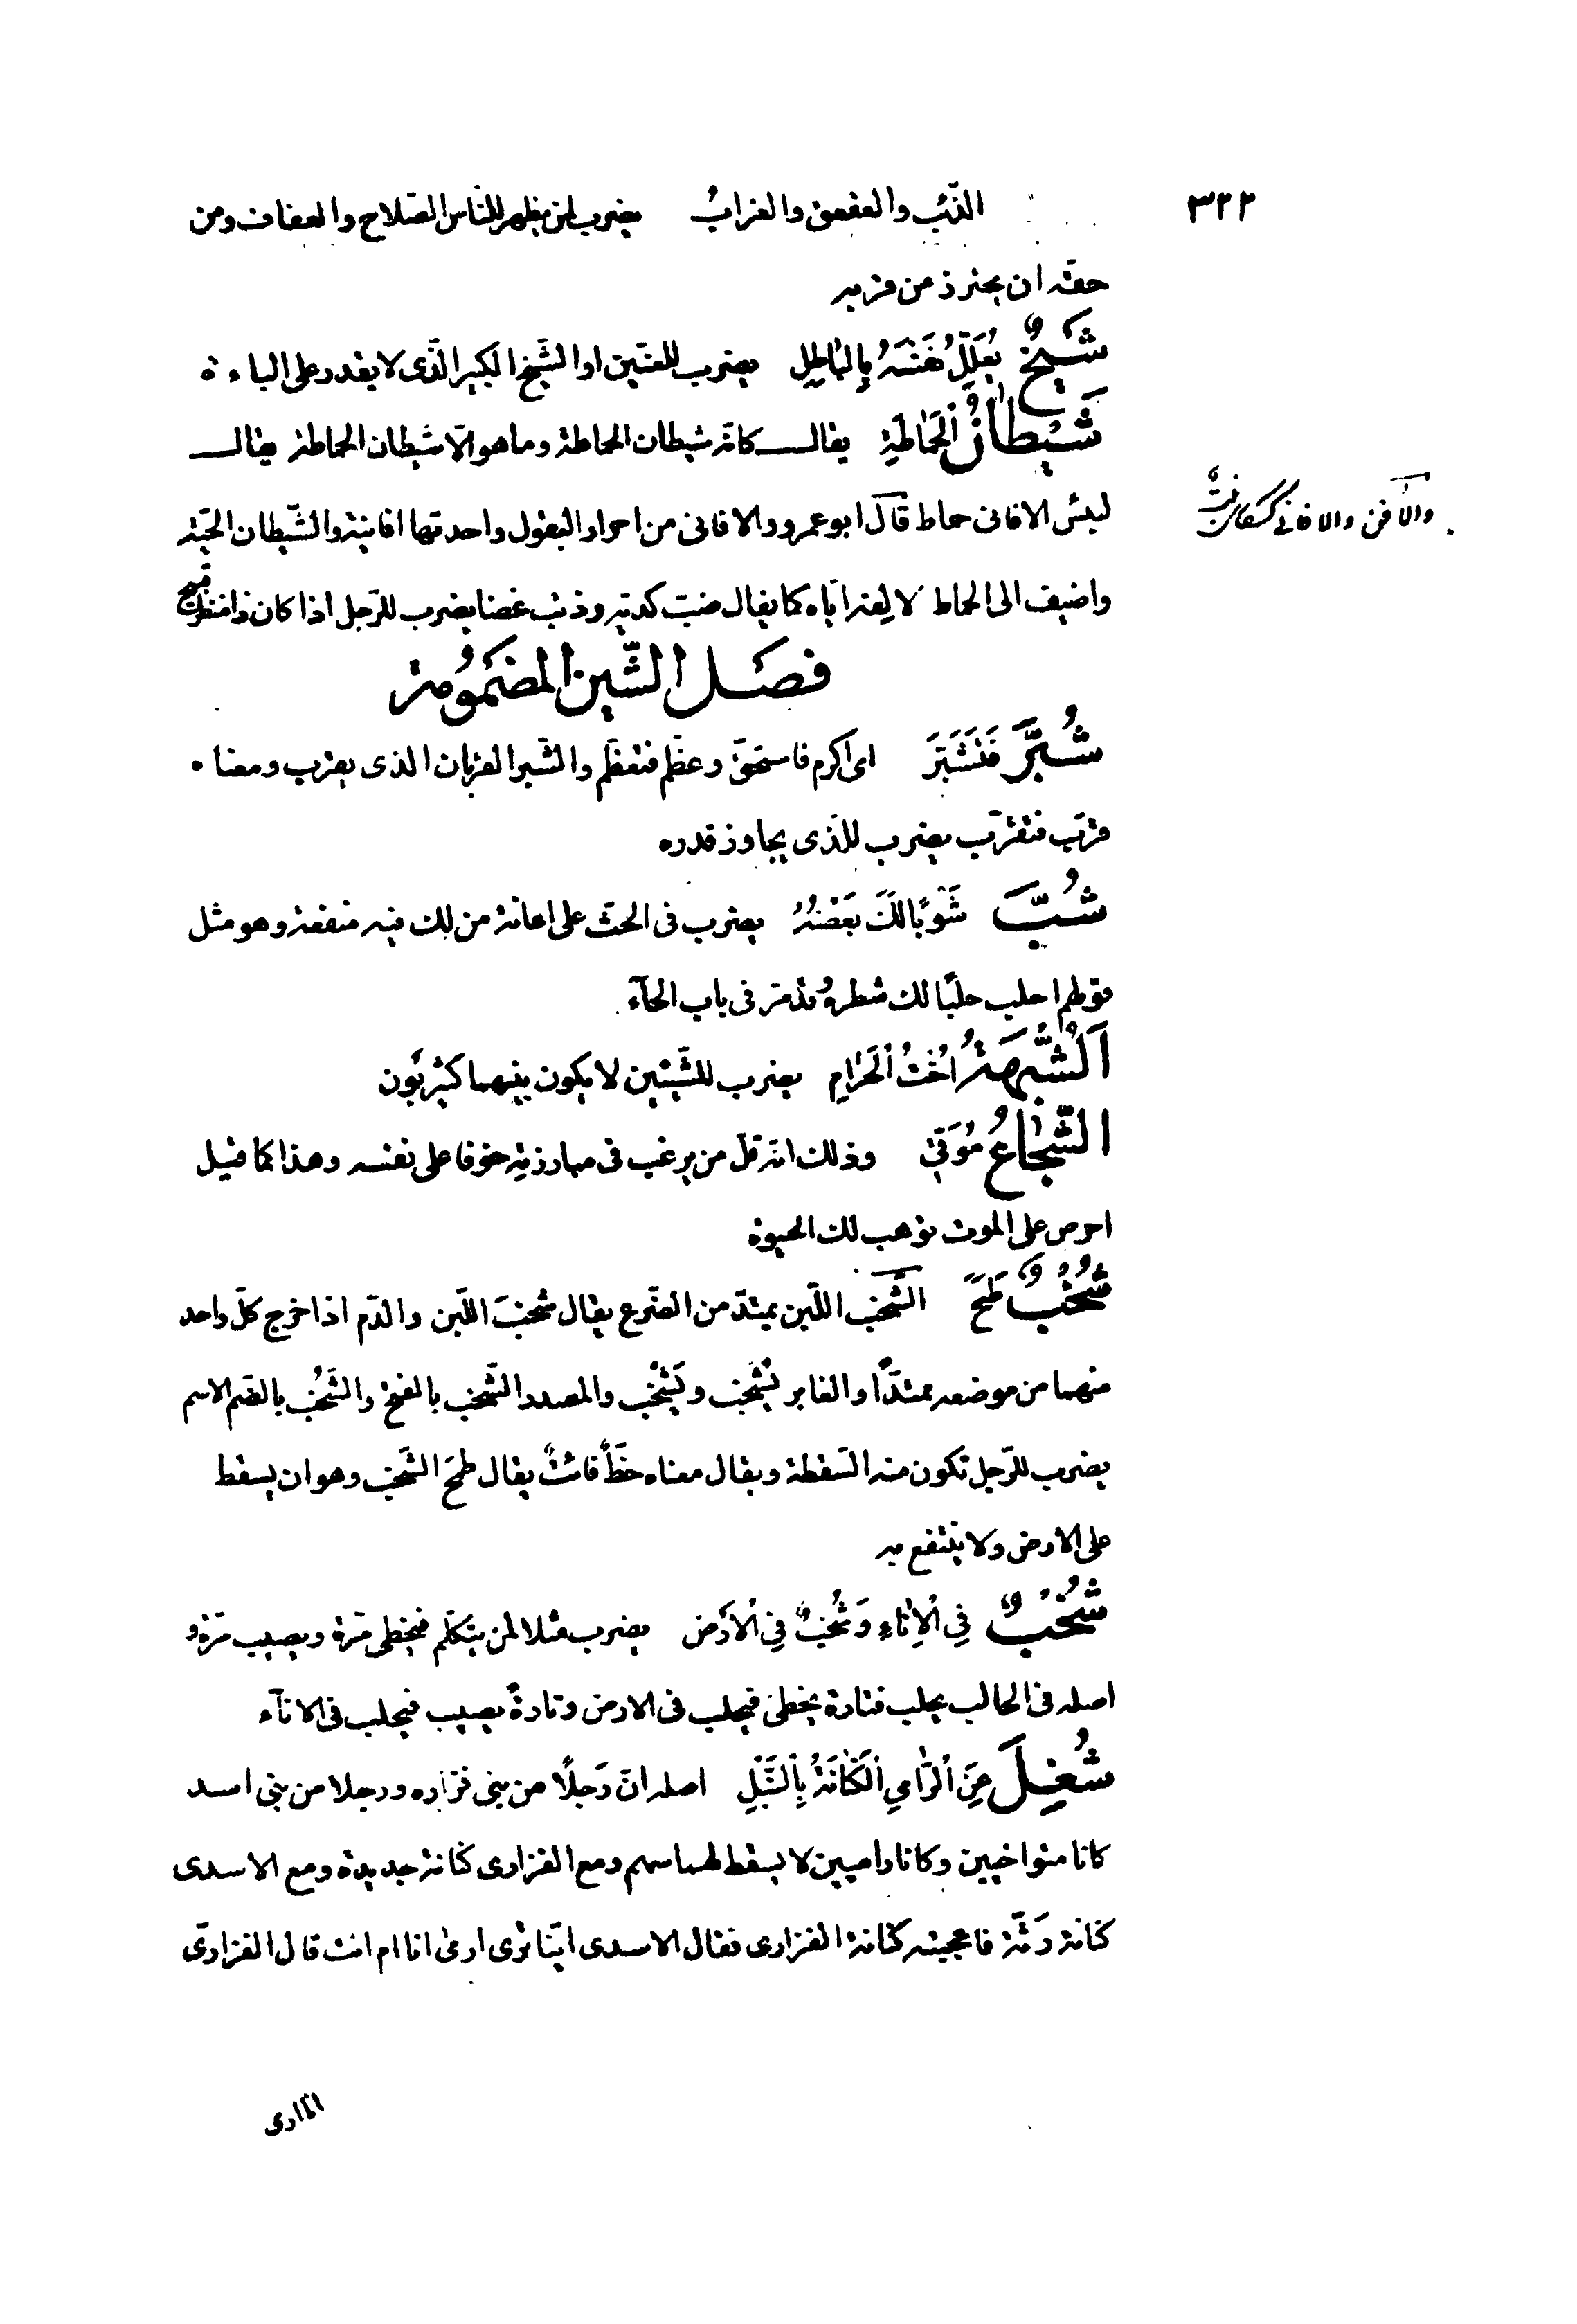 ٣٢٢
الذّئب والعقعق والغرابُ يضرب لمن يظهر للنّاس الصّلاح والعفاف ومن
حقّه ان يحترز من قربه
شَيْخٌ يُعَلِّلُ نَفْسَهُ بِالبَاطِلِ يضرب للعنّين او الشّيخ الكبير الّذى لا يقدر على الباءة
شَيْطَانُ الْحَمَاطَةِ يقال كانّه شيطان الحماطة وما هو الّا شيطان الحماطة يقال
ليبس الافانى حماط قال ابو عمرو والافانى من احرار البقول واحدتها افانية والشّيطان الحيّة
والافن والافانى
واضيف الى الحماط لالفه ايّاه كما يقال ضبّ كدية وذئب غضا يضرب للرّجل اذا كان ذا منظر قبيح
فصل الشّين المضمُومة
شُبِّرَ فَتَشَبَّرَ اى اكرم فاستحق وعظّم فتعظّم والشّبر القربان الذى يقرب ومعناه
قرّب فتقرّب يضرب للّذى يجاوز قدره
شُبَّ شَوْبًا لَكَ بَعْضُهُ يضرب فى الحثّ على اعانة من لك فيه منفعة وهو مثل
قولهم احلب حلبًا لك شطرهُ وقد مرّ فى باب الحآء
اَلشُّبْهَةُ اُخْتُ الْحَرَامِ يضرب للشّيئين لا يكون بينهما كثير بون
الشُّجَاعُ مُوَقّىً وذلك انّه قلّ من يرغب فى مبارزته خوفا على نفسه وهذا كما قيل
احرص على الموت توهب لك الحيوة
شُخْبٌ طَمَحَ الشّخب اللّبن يمتدّ من الضّرع يقال شخبَ اللّبن والدّم اذا خرج كلّ واحد
منهما من موضعه ممتدًّا والغابر يَشْخَب ويَشْخُب والمصدر الشّخب بالفتح والشُّخب بالضّم الاسم
يضرب للرّجل تكون منه السّقطة ويقال معناه حظٌّ فائتٌ يقال طمحَ الشّخب وهو ان يسقط
على الارض ولا ينتفع به
شُخْبٌ فِى الْاِنَاءِ وَشُخْبٌ فِى الْاَرْضِ يضرب مثلا لمن يتكلّم فيخطى مرّة ويصيب مرّة و
اصله فى الحالب يحلب فتارة يخطئ فيحلب فى الارض وتارةً يصيب فيحلب فى الانآء
شُغِلَ عَنِ الرَّامِى الْكِنَانَةُ بِالنَّبْلِ اصله انّ رَجلًا من بنى فزاره ورجلا من بنى اسد
كانا متواخيين وكانا راميين لا يسقط لهما سهم ومع الفزارى كنانة جديدة ومع الاسدى
كنانة رَثّة فاعجبته كنانة الفزارى فقال الاسدى ايّنا ترى ارمى انا ام انت قال الفزارىّ